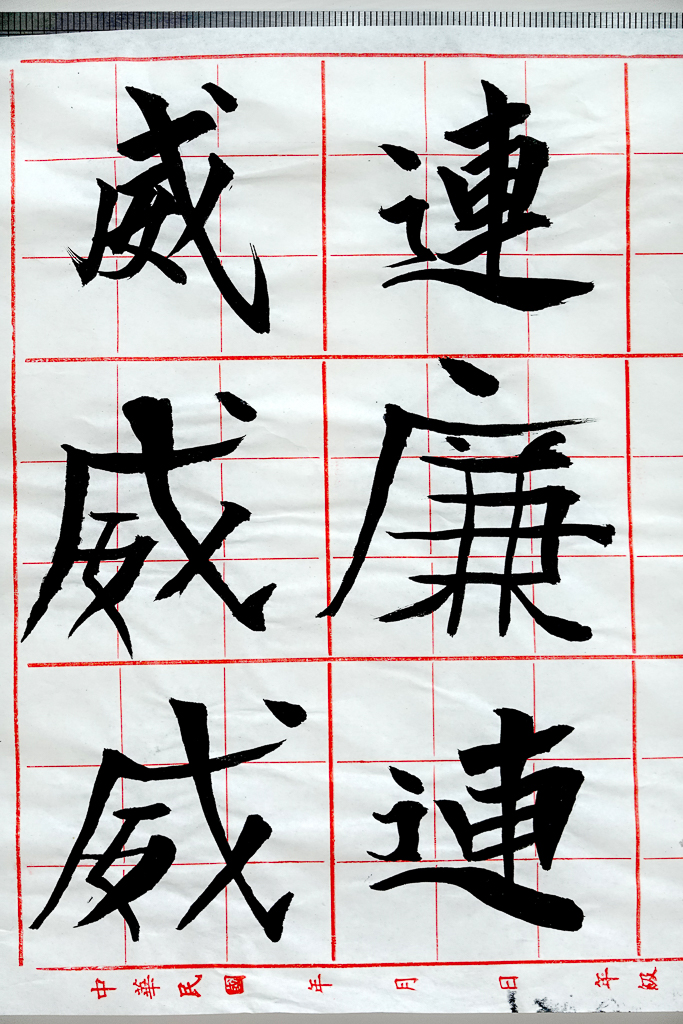 連廉連
威威威
中華民國 年 月 日 年級